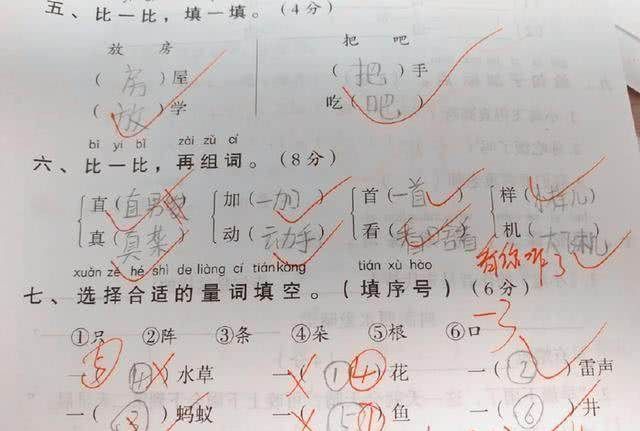 五、比一比，填一填。（4分）
放 房 把 吧
（房）屋 （把）手
（放）学 吃（吧）
bǐ yi bǐ zài zǔ cí
六、比一比，再组词。（8分）
直（直男） 加（一加） 首（一首） 样（）
真（真菜） 动（动手） 看（） 机（大飞机）
有你咋了
xuǎn zé hé shì de liàng cí tián kòng tián xù hào
七、选择合适的量词填空。（填序号）（6分）
-3
①只 ②阵 ③条 ④朵 ⑤根 ⑥口
一（④）水草 ⑤ 一（①）花 ④ 一（②）雷声
一（③）蚂蚁 一（⑤）鱼 一（⑥）井